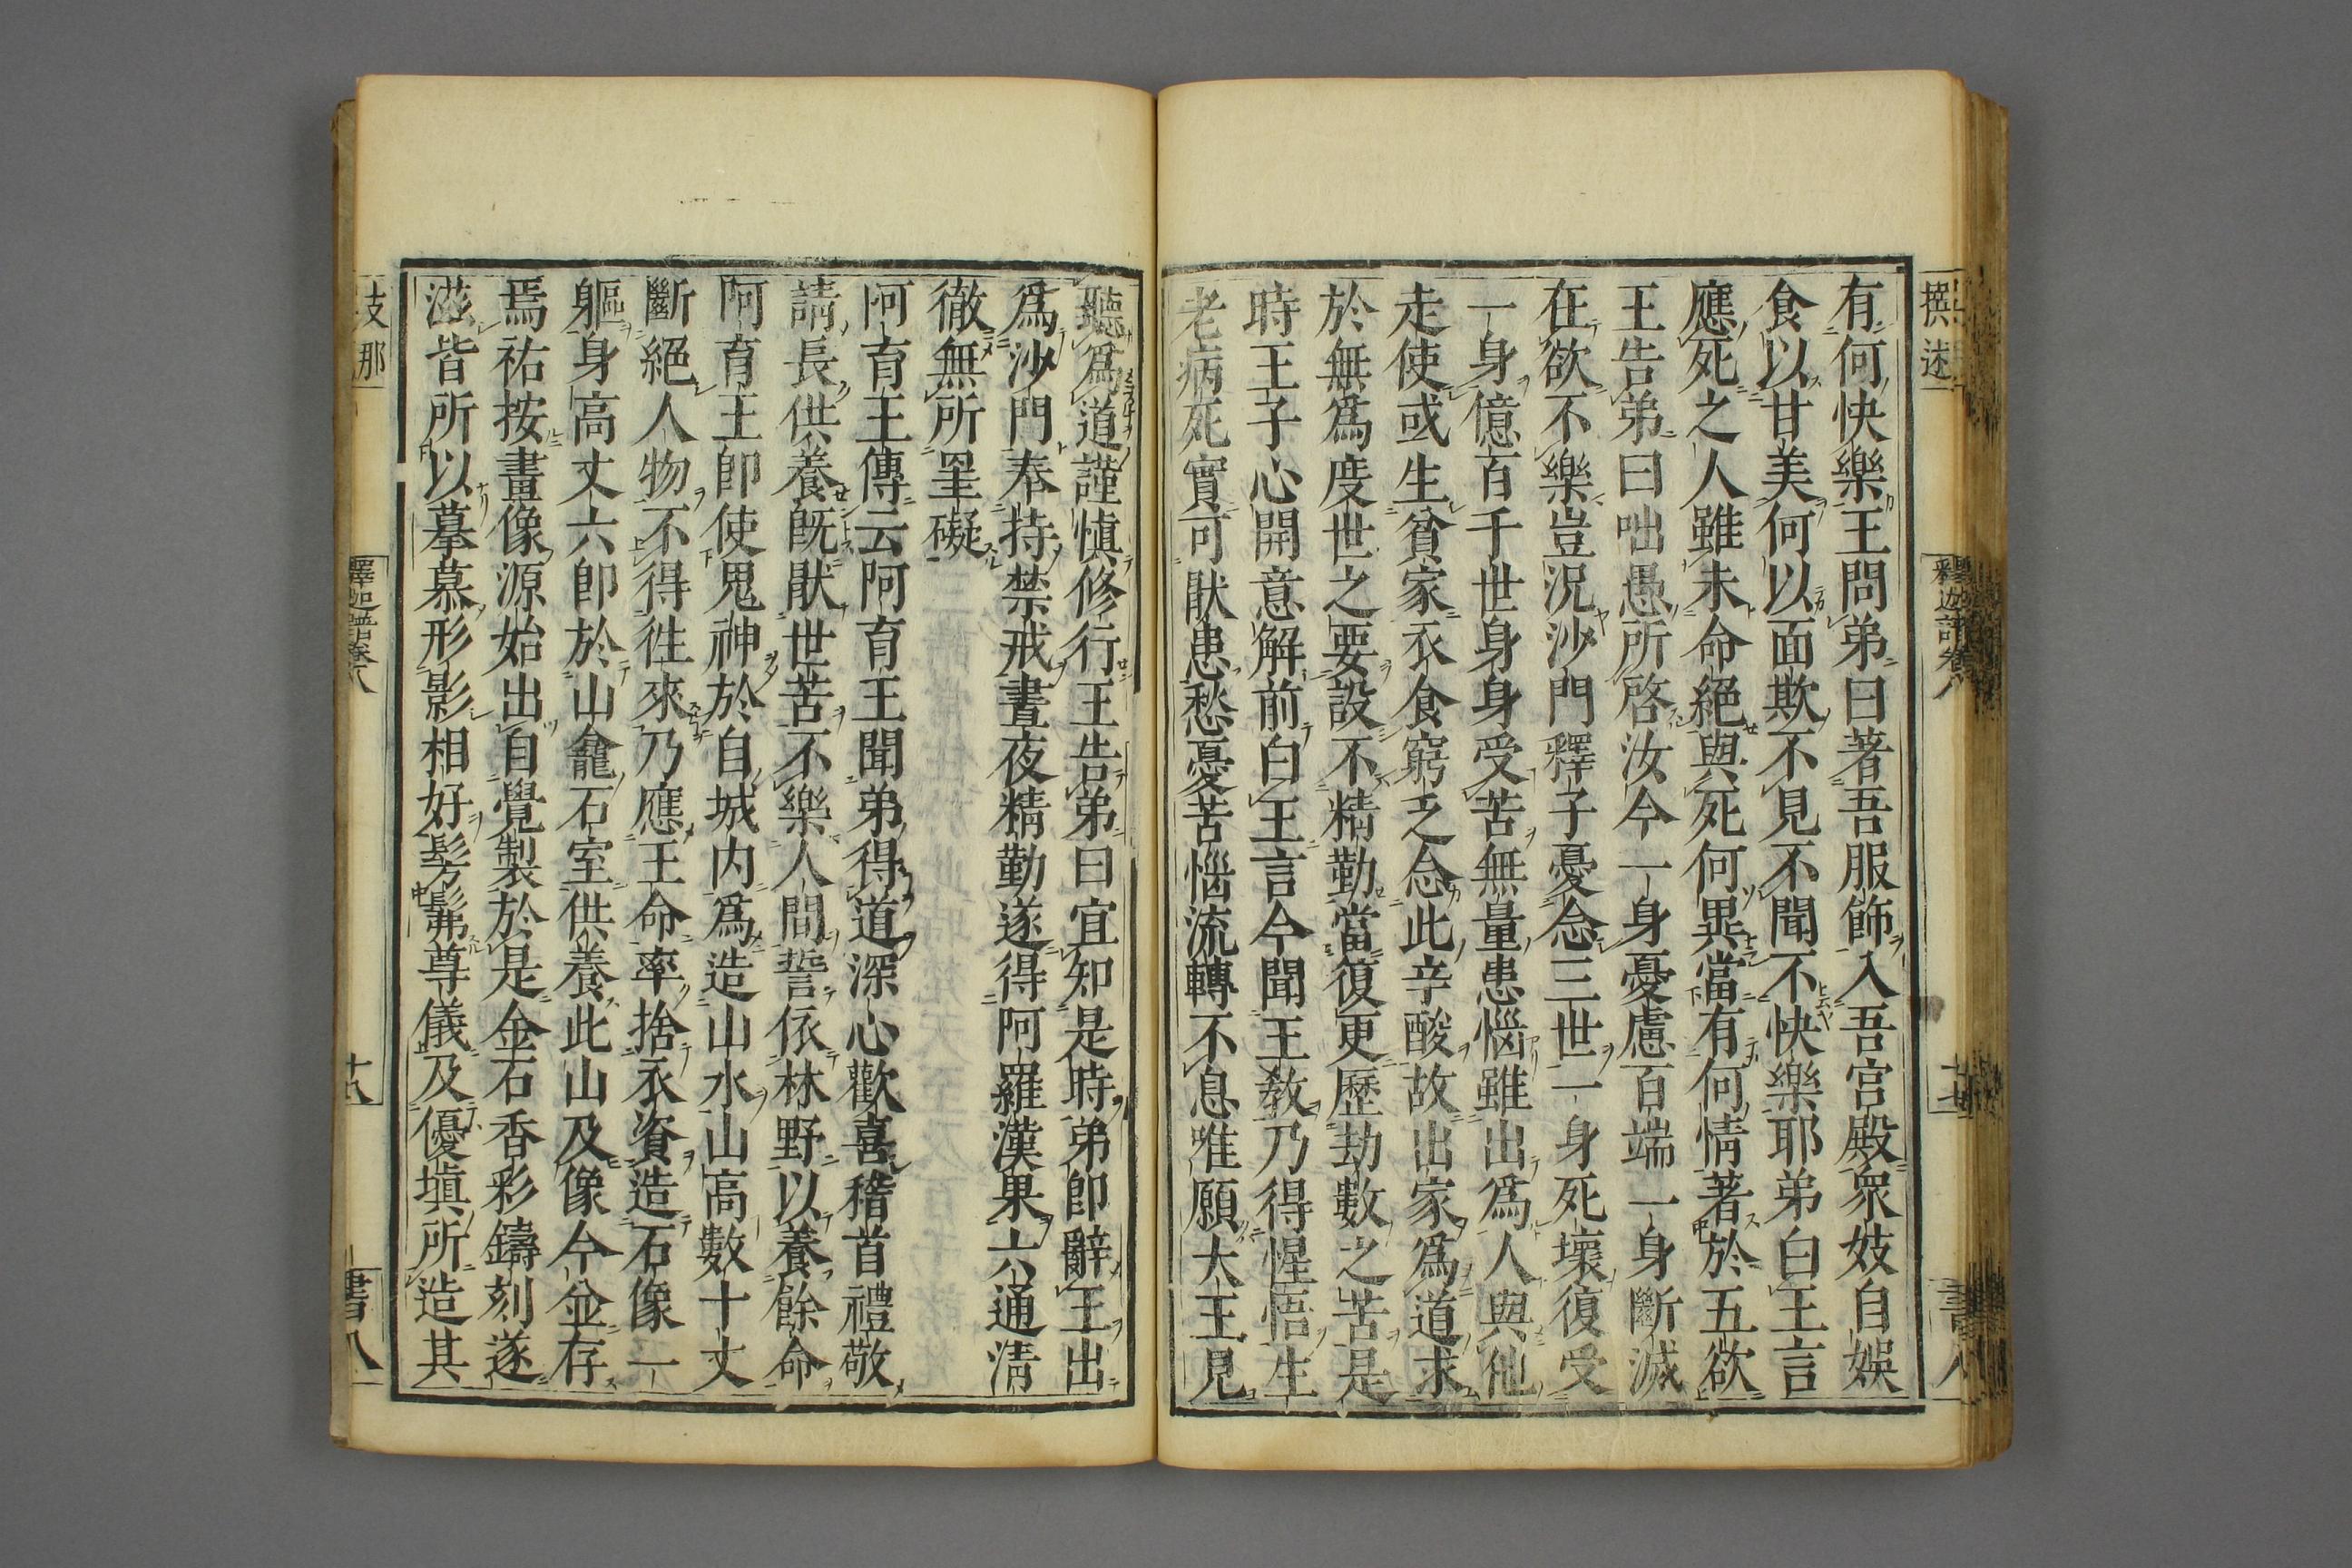 撰述
釋迦譜卷八
十七
書八
有何快樂王問弟曰著吾服飾入吾宮殿衆妓自娛
食以甘美何以面欺不見不聞不快樂耶弟白王言
應死之人雖未命絕與死何異當有何情著於五欲
王告弟曰咄愚所啓汝今一身憂慮百端一身斷滅
在欲不樂豈況沙門釋子憂念三世一身死壞復受
一身億百千世身身受苦無量患惱雖出爲人與他
走使或生貧家衣食窮乏念此辛酸故出家爲道求
於無爲度世之要設不精勤當復更歷劫數之苦是
時王子心開意解前白王言今聞王教乃得惺悟生
老病死實可猒患愁憂苦惱流轉不息唯願大王見
聽爲道謹愼修行王告弟曰宜知是時弟卽辭王出
爲沙門奉持禁戒晝夜精勤遂得阿羅漢果六通淸
徹無所罣礙
阿育王傳云阿育王聞弟得道深心歡喜稽首禮敬
請長供養旣猒世苦不樂人間誓依林野以養餘命
阿育王卽使鬼神於自城內爲造山水山高數十丈
斷絕人物不得徃來乃應王命率捨衣資造石像一
軀身高丈六卽於山龕石室供養此山及像今並存
焉祐按畫像源始出自覺製於是金石香彩鑄刻遂
滋皆所以摹慕形影相好髣髴尊儀及優塡所造其
支那
釋迦譜卷八
十八
書八